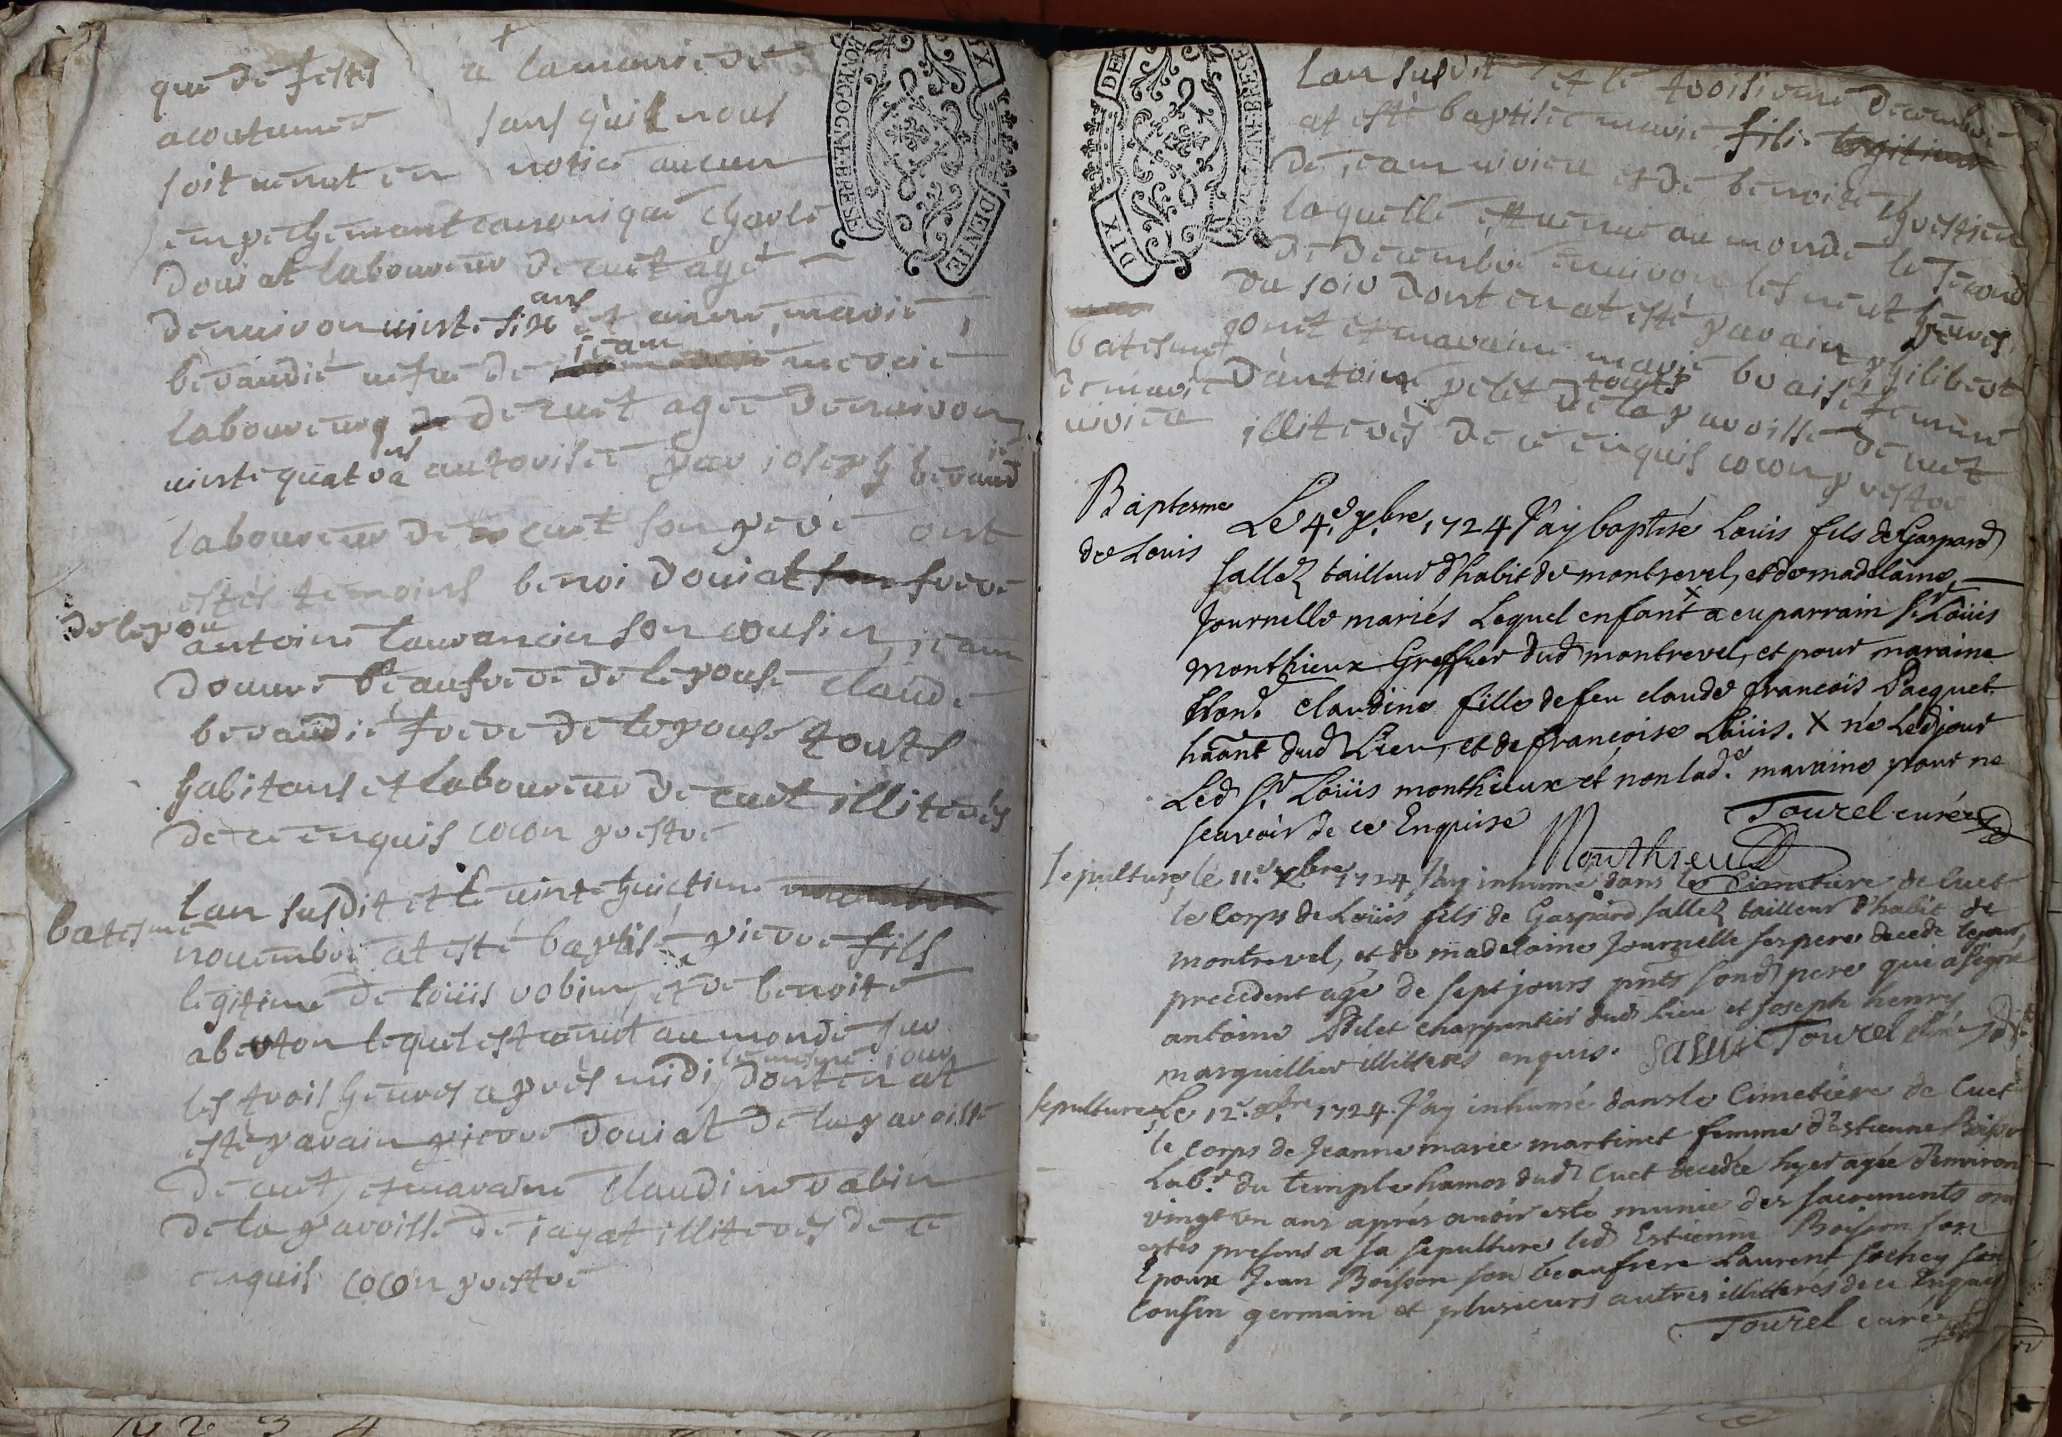 que de festes a la maniere de
acoutumee sans quil nous
soit venut en notice aucun
empechemant canonique charle
douiat laboureur de cuet agé
denuiron uinte six ans et anne marie
beraudié uefue de jean mercié
laboureur de cuet agee denuiron
uinte quatra ans autorisee par joseph beraud
laboureur de cuet son pere ont
estés temoins benoi douiat frere
de lepou
antoine laurancin son cousin, jean
beaufrere de lepouse claude
beraudié frere de lepouse touts
habitans et laboureur de cuet illiterés
de ce enquis cocon prestre
batesme
lan susdit et le uintehuictime
nouembre at esté baptisé pierre fils
legitime de loüis robin et de benoite
lequel est uenut au monde sur
les trois heures apres midi le mesme jour dont en at
esté parain pierre douiat de la paroisse
de cuet, et maraine claudine rabin
de la paroisse de jayat illiterés de ce
enquis cocon prestre
DIX DENIE
BOURGOGNE BRESSE
DIX DE
lan susdit et le troisieme decembre
at esté baptisee marie fille legitime
de jean riviere et de benoite
laquelle est uenue au monde le second
de decembre enuiron les neuf heures
du soir dont en at esté parain philibert
batesme de marie riviere
gonet et maraine marie femme
dantoine pelet touts de la paroisse de cuet
illiterés de ce enquis cocon prestre
Baptesme de Louis
Le 4e xbre 1724 J'ay baptisé Loüis fils de Gaspard
Sallez tailleur d'habit de montrevel, et de madelaine
Journelle mariés Lequel enfant X a eu parrain Sr Loüis
Monthieux Greffier dud montrevel, et pour maraine
hon.e Claudine fille de feu claude francois Pacquet
dud Lieu, et de francoise Loüis. X né led jour
Led Sr Loüis monthieux et non lad.e maraine pour ne
scavoir de ce Enquise Tourel curé
Monthieux
Sepulture
le 11e xbre 1724 J'ay inhumé dans le Cimetiere de Cuet
le Corps de Loüis fils de Gaspard Sallez tailleur d'habit de
montrevel, et de madelaine Journelle ses pere decedé le jour
precedent agé de sept jours pnts sond pere qui a signé
antoine Pelet charpentier dud lieu et Joseph henry
marguillier illitteres enquis. Tourel curé
Sepulture
Le 12e xbre 1724. J'ay inhumé dans le Cimetiere de Cuet
le corps de Jeanne marie martinet femme d'Estienne Boisson
Lab.r du temple hamos dud Cuet decedée hyer agée d'environ
vingt un ans aprés avoir esté munie des sacrements ont
estés presens a sa sepulture led Estienne Boisson son
Epoux Jean Boisson son beaufrere Laurent Sochey son
Cousin germain et plusieurs autres illitteres de ce Enquis
Tourel curé